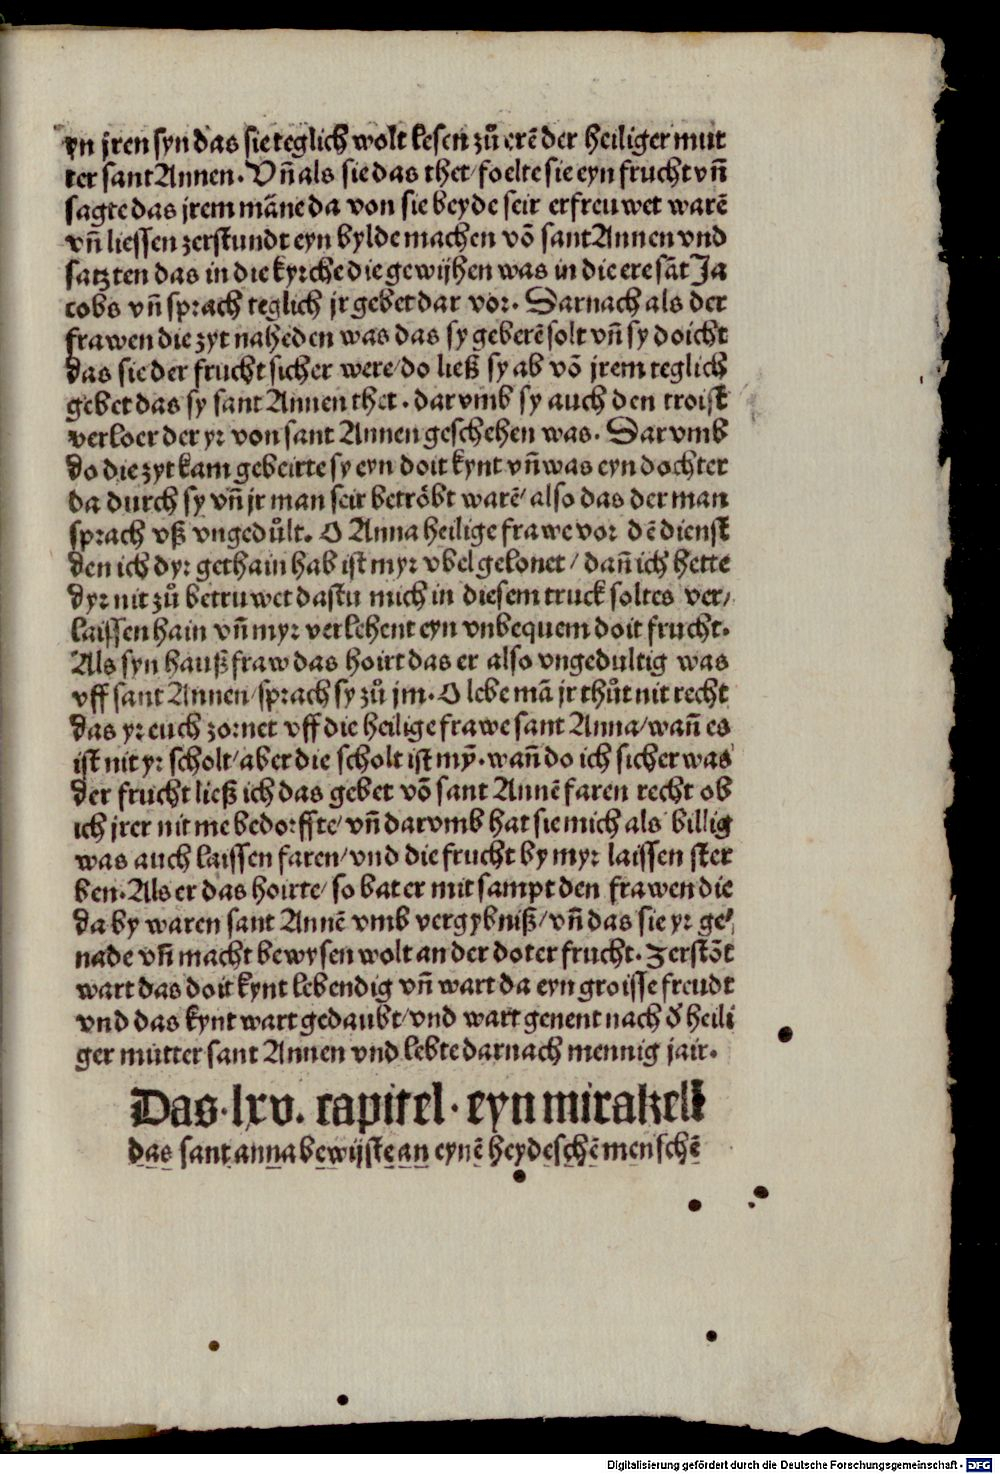 yn jren syn das sie teglich wolt lesen zů erē der heiliger mut
ter sant Annen. Vn̄ als sie das thet/ foelte sie eyn frucht vn̄
sagte das jrem māne da von sie beyde seir erfreuwet warē
vn̄ liessen zerstundt eyn bylde machen vō sant Annen vnd
satzten das in die kyrche die gewijhen was in die ere sāt Ja
cobs vn̄ sprach teglich jr gebet dar vor. Darnach als der
frawen die zyt naheden was das sy geberē solt vn̄ sy doicht
das sie der frucht sicher were/ do ließ sy ab vō jrem teglich
gebet das sy sant Annen thet. dar vmb sy auch den troist
verloer der yr von sant Annen geschehen was. Dar vmb
do die zyt kam gebeirte sy eyn doit kynt vn̄ was eyn dochter
da durch sy vn̄ jr man seir betrōbt warē/ also das der man
sprach vß vngedůlt. O Anna heilige frawe vor dē dienst
den ich dyr gethain hab ist myr vbel gelonet/ dan̄ ich hette
dyr nit zů betruwet dastu mich in diesem truck soltes ver/
laissen hain vn̄ myr verlehent eyn vnbequem doit frucht.
Als syn haußfraw das hoirt das er also vngedultig was
vff sant Annen/ sprach sy zů jm. O lebe mā jr thůt nit recht
das yr euch zornet vff die heilige frawe sant Anna/ wan̄ es
ist nit yr scholt/ aber die scholt ist mȳ. wan̄ do ich sicher was
der frucht ließ ich das gebet vō sant Annē faren recht ob
ich jrer nit me bedorffte/ vn̄ darvmb hat sie mich als billig
was auch laissen faren/ vnd die frucht by myr laissen ster
ben. Als er das hoirte/ so bat er mit sampt den frawen die
da by waren sant Annē vmb vergybniß/ vn̄ das sie yr ge/
nade vn̄ macht bewysen wolt an der doter frucht. Zerstōt
wart das doit kynt lebendig vn̄ wart da eyn groisse freudt
vnd das kynt wart gedaubt/ vnd wart genent nach d' heili
ger mutter sant Annen vnd lebte darnach mennig jair.
Das. lxv. capitel. eyn mirakell
das sant anna bewijste an eynē heydeschē menschē
Digitalisierung gefördert durch die Deutsche Forschungsgemeinschaft - DFG